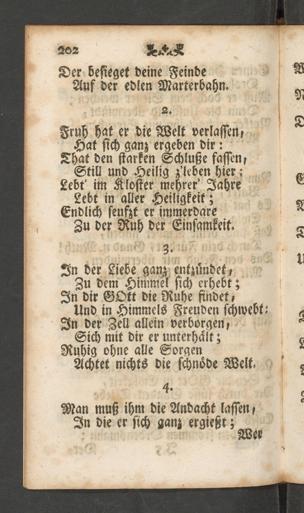 202
Der besieget deine Feinde
Auf der edlen Marterbahn.
2.
Fruh hat er die Welt verlassen,
Hat sich ganz ergeben dir:
That den starken Schluße fassen,
Still und Heilig z'leben hier;
Lebt' im Kloster mehrer' Jahre
Lebt in aller Heiligkeit;
Endlich seufzt er immerdare
Zu der Ruh der Einsamkeit.
3.
In der Liebe ganz entzündet,
Zu dem Himmel sich erhebt;
In dir GOtt die Ruhe findet,
Und in Himmels Freuden schwebt:
In der Zell allein verborgen,
Sich mit dir er unterhält;
Ruhig ohne alle Sorgen
Achtet nichts die schnöde Welt.
4.
Man muß ihm die Andacht lassen,
In die er sich ganz ergießt;
Wer